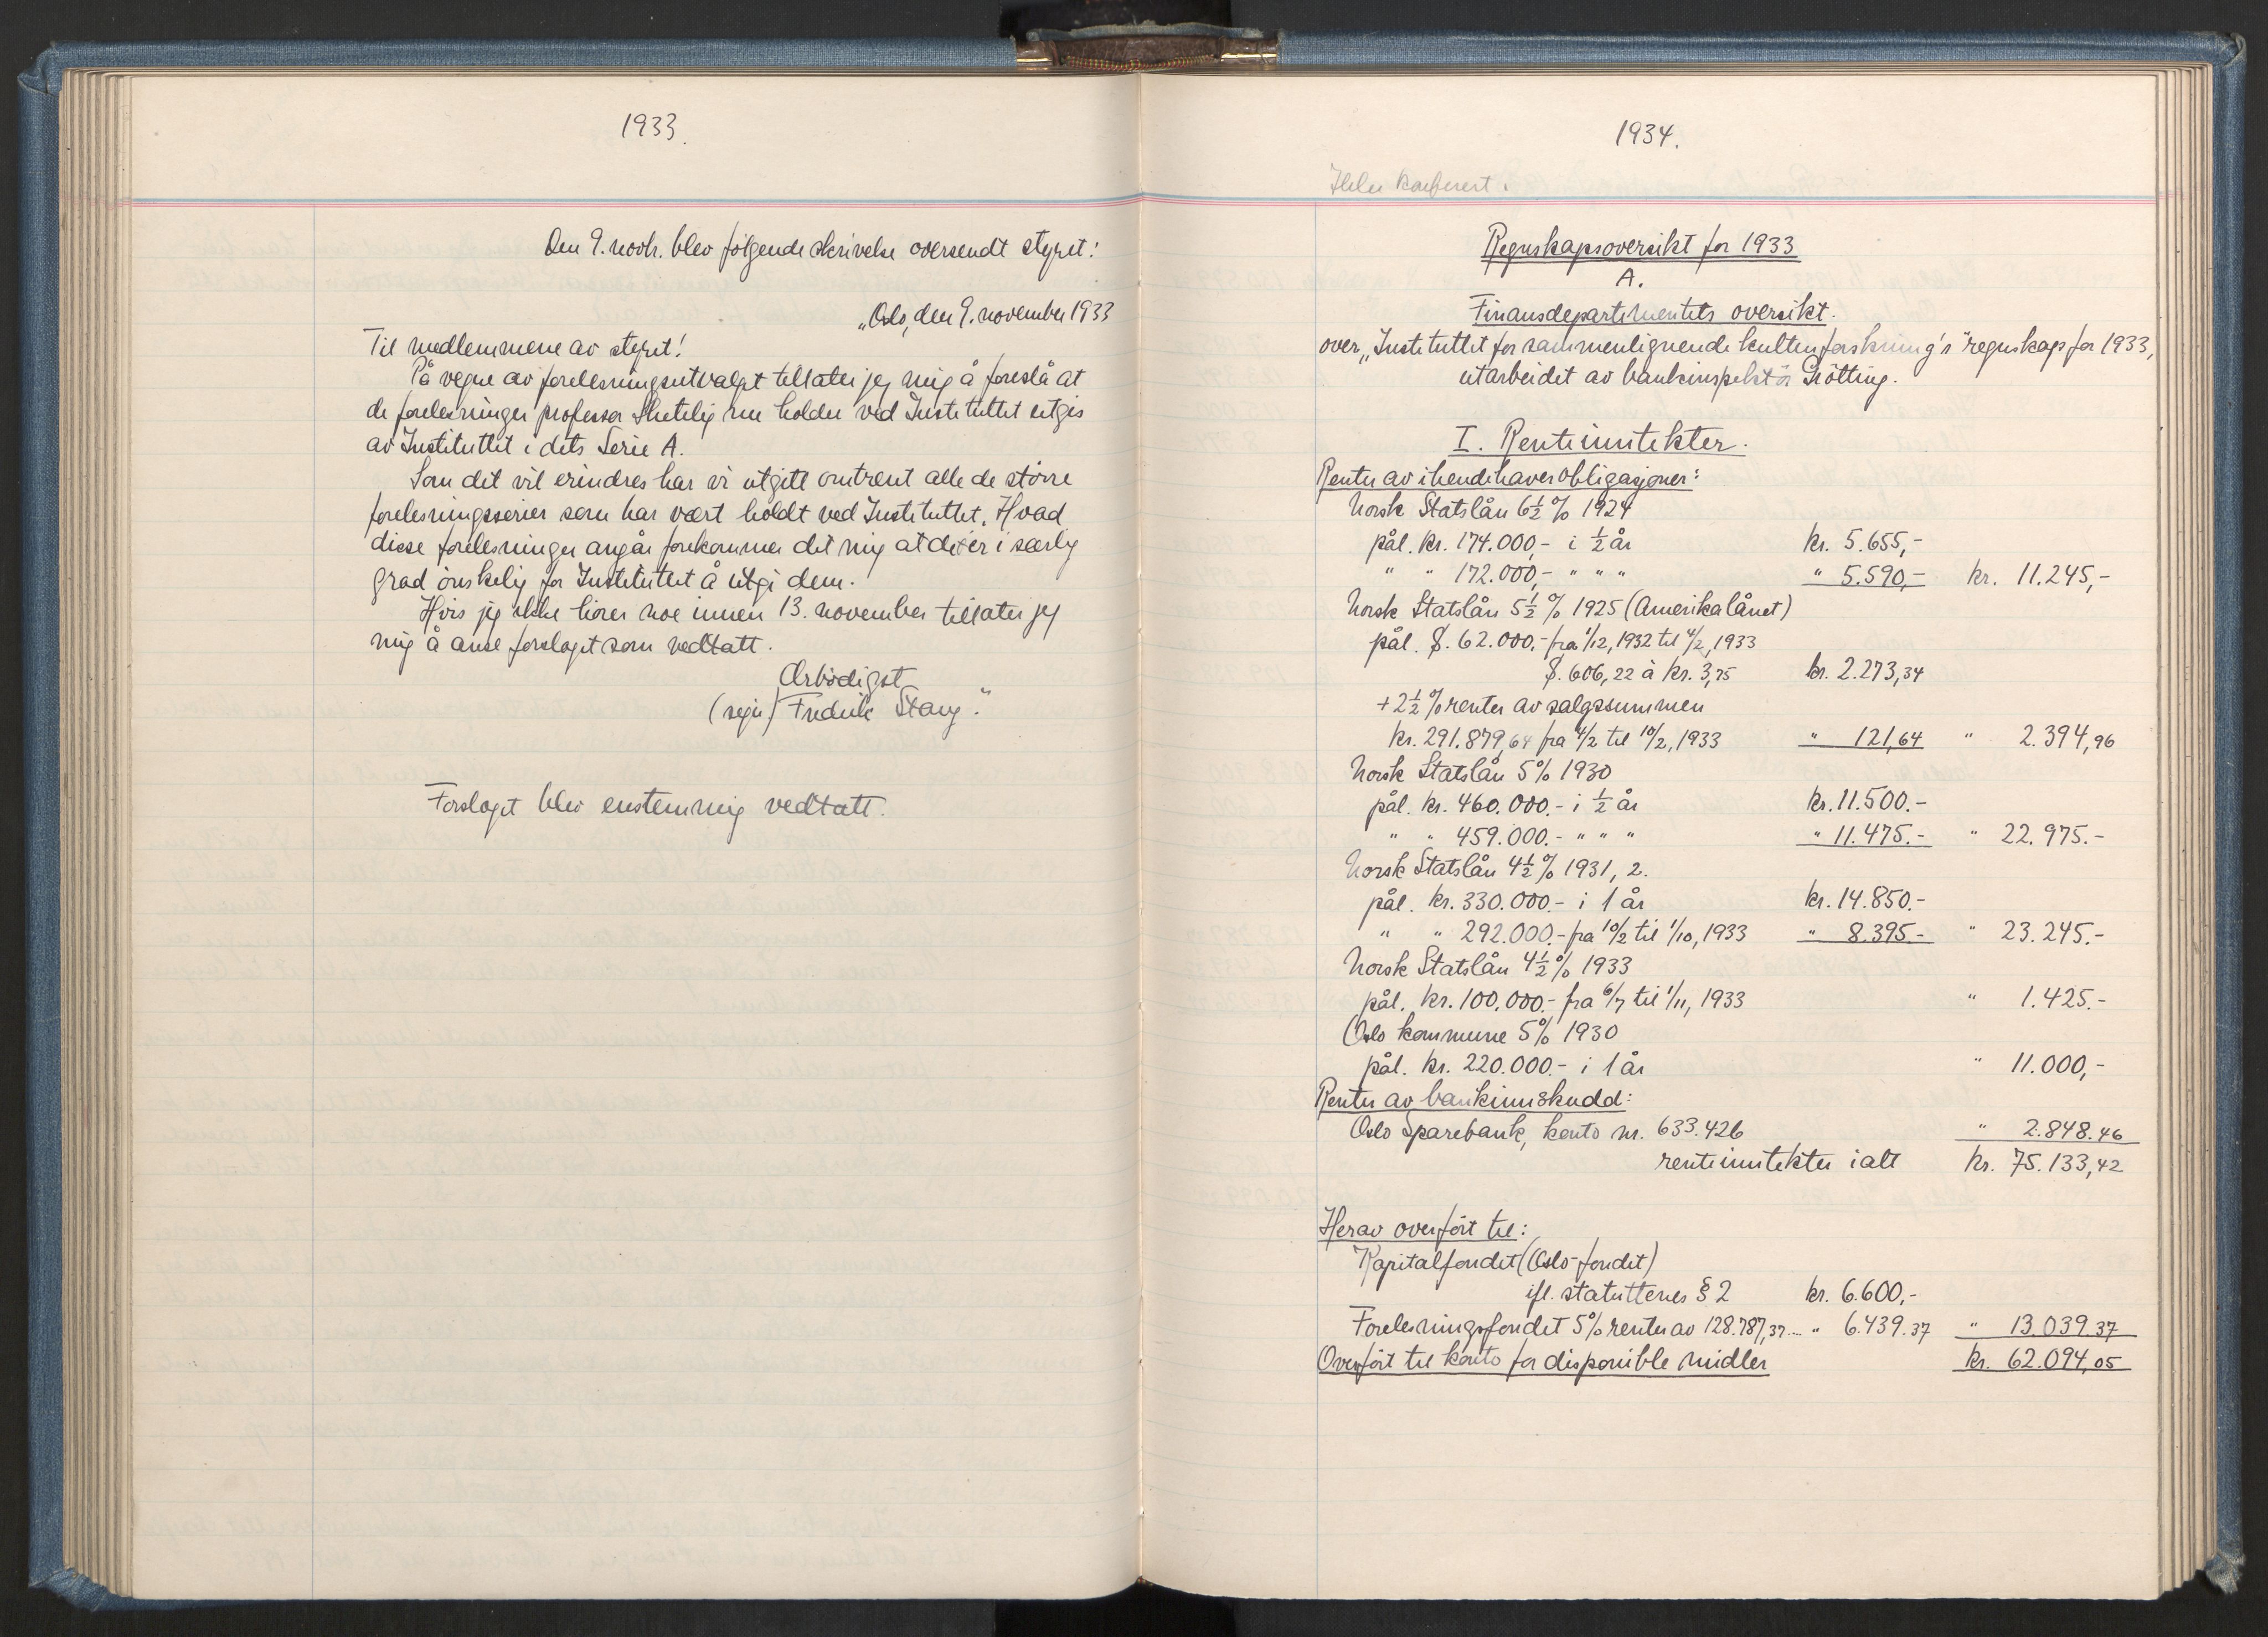 1933.
Den 9. novbr. blev følgende skrivelse oversendt styret:
„Oslo, den 9. november 1933
Til medlemmene av styret!
På vegne av forelesningsutvalget tillater jeg mig å foreslå at
de forelesninger professor Shetelig nu holder ved Instituttet utgis
av Instituttet i dets Serie A.
Som det vil erindres har vi utgitt omtrent alle de større
forelesningsserier som har vært holdt ved Instituttet. Hvad
disse forelesninger angår forekommer det mig at det er i særlig
grad ønskelig for Instituttet å utgi dem.
Hvis jeg ikke hører noe innen 13. november tillater jeg
mig å anse forslaget som vedtatt.
Ærbødigst
(sign) Fredrik Stang."
Forslaget blev enstemmig vedtatt.
1934.
Regnskapsoversikt for 1933
A.
Finansdepartementets oversikt.
over „Instituttet for sammenlignende kulturforskning's" regnskap for 1933,
utarbeidet av bankinspektør Grøtting.
I. Renteinntekter.
Renter av ihendehaverobligasjoner:
Norsk Statslån 6½% 1924
pål. kr. 174.000,- i ½ år kr. 5.655,-
" " 172.000,- " " " " 5.590,- kr. 11.245,-
Norsk Statslån 5½% 1925 (Amerikalånet)
pål. $. 62.000,- fra 1/12, 1932 til 4/2, 1933
$. 606,22 à kr. 3,75 kr. 2.273,34
+ 2½% renter av salgssummen
kr. 291.879,64 fra 4/2 til 10/2, 1933 " 121,64 " 2.394,96
Norsk Statslån 5% 1930
pål. kr. 460.000.- i ½ år kr. 11.500.-
" " 459.000.- " " " " 11.475.- " 22.975.-
Norsk Statslån 4½% 1931, 2.
pål. kr. 330.000.- i 1 år kr. 14.850.-
" " 292.000.- fra 10/2 til 1/10, 1933 " 8.395- " 23.245.-
Norsk Statslån 4½% 1933
pål. kr. 100.000.- fra 6/7 til 1/11, 1933 " 1.425.-
Oslo kommune 5% 1930
pål. kr. 220.000.- i 1 år " 11.000,-
Renter av bankinnskudd:
Oslo Sparebank, konto nr. 633.426 " 2.848.46
renteinntekter ialt kr. 75.133,42
Herav overført til:
Kapitalfondet (Oslo-fondet)
ifl. statuttenes § 2 kr. 6.600,-
Forelesningsfondet 5% renter av 128.787,37... " 6.439.37 " 13.039.37
Overført til konto for disponible midler kr. 62.094,05